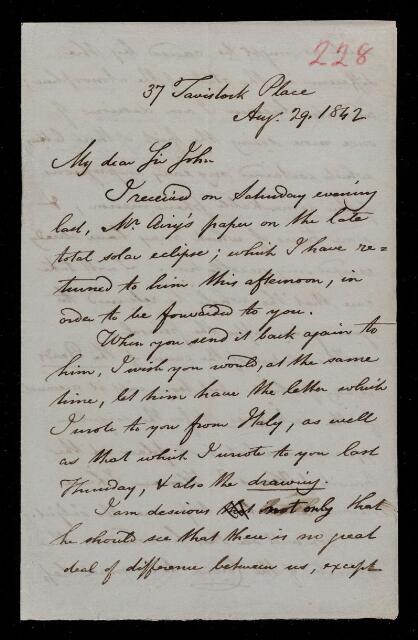 228
37 Tavistock Place
Aug. 29. 1842
My dear Sir John
I received on Saturday evening
last, Mr. Airy's paper on the late
total solar eclipse; which I have re=
turned to him this afternoon, in
order to be forwarded to you.
When you send it back again to
him, I wish you would, at the same
time, let him have the letter which
I wrote to you from Italy, as well
as that which I wrote to you last
Thursday, & also the drawing.
I am desirous not only that
he should see that there is no great
deal of difference between us, except